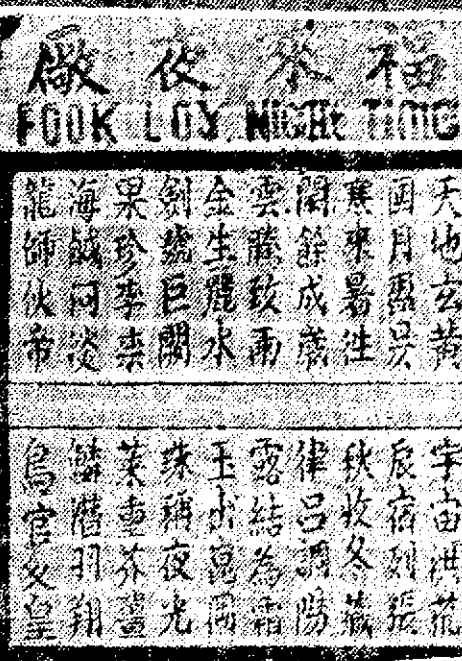 福來夜廠
FOOK LOY NIGHT TIME
天地玄黃
日月盈昃
寒來暑往
閏餘成歲
雲騰致雨
金生麗水
劍號巨闕
果珍李柰
海鹹河淡
龍師火帝
宇宙洪荒
辰宿列張
秋收冬藏
律呂調陽
露結為霜
玉出崑岡
珠稱夜光
菜重芥薑
鱗潛羽翔
鳥官人皇